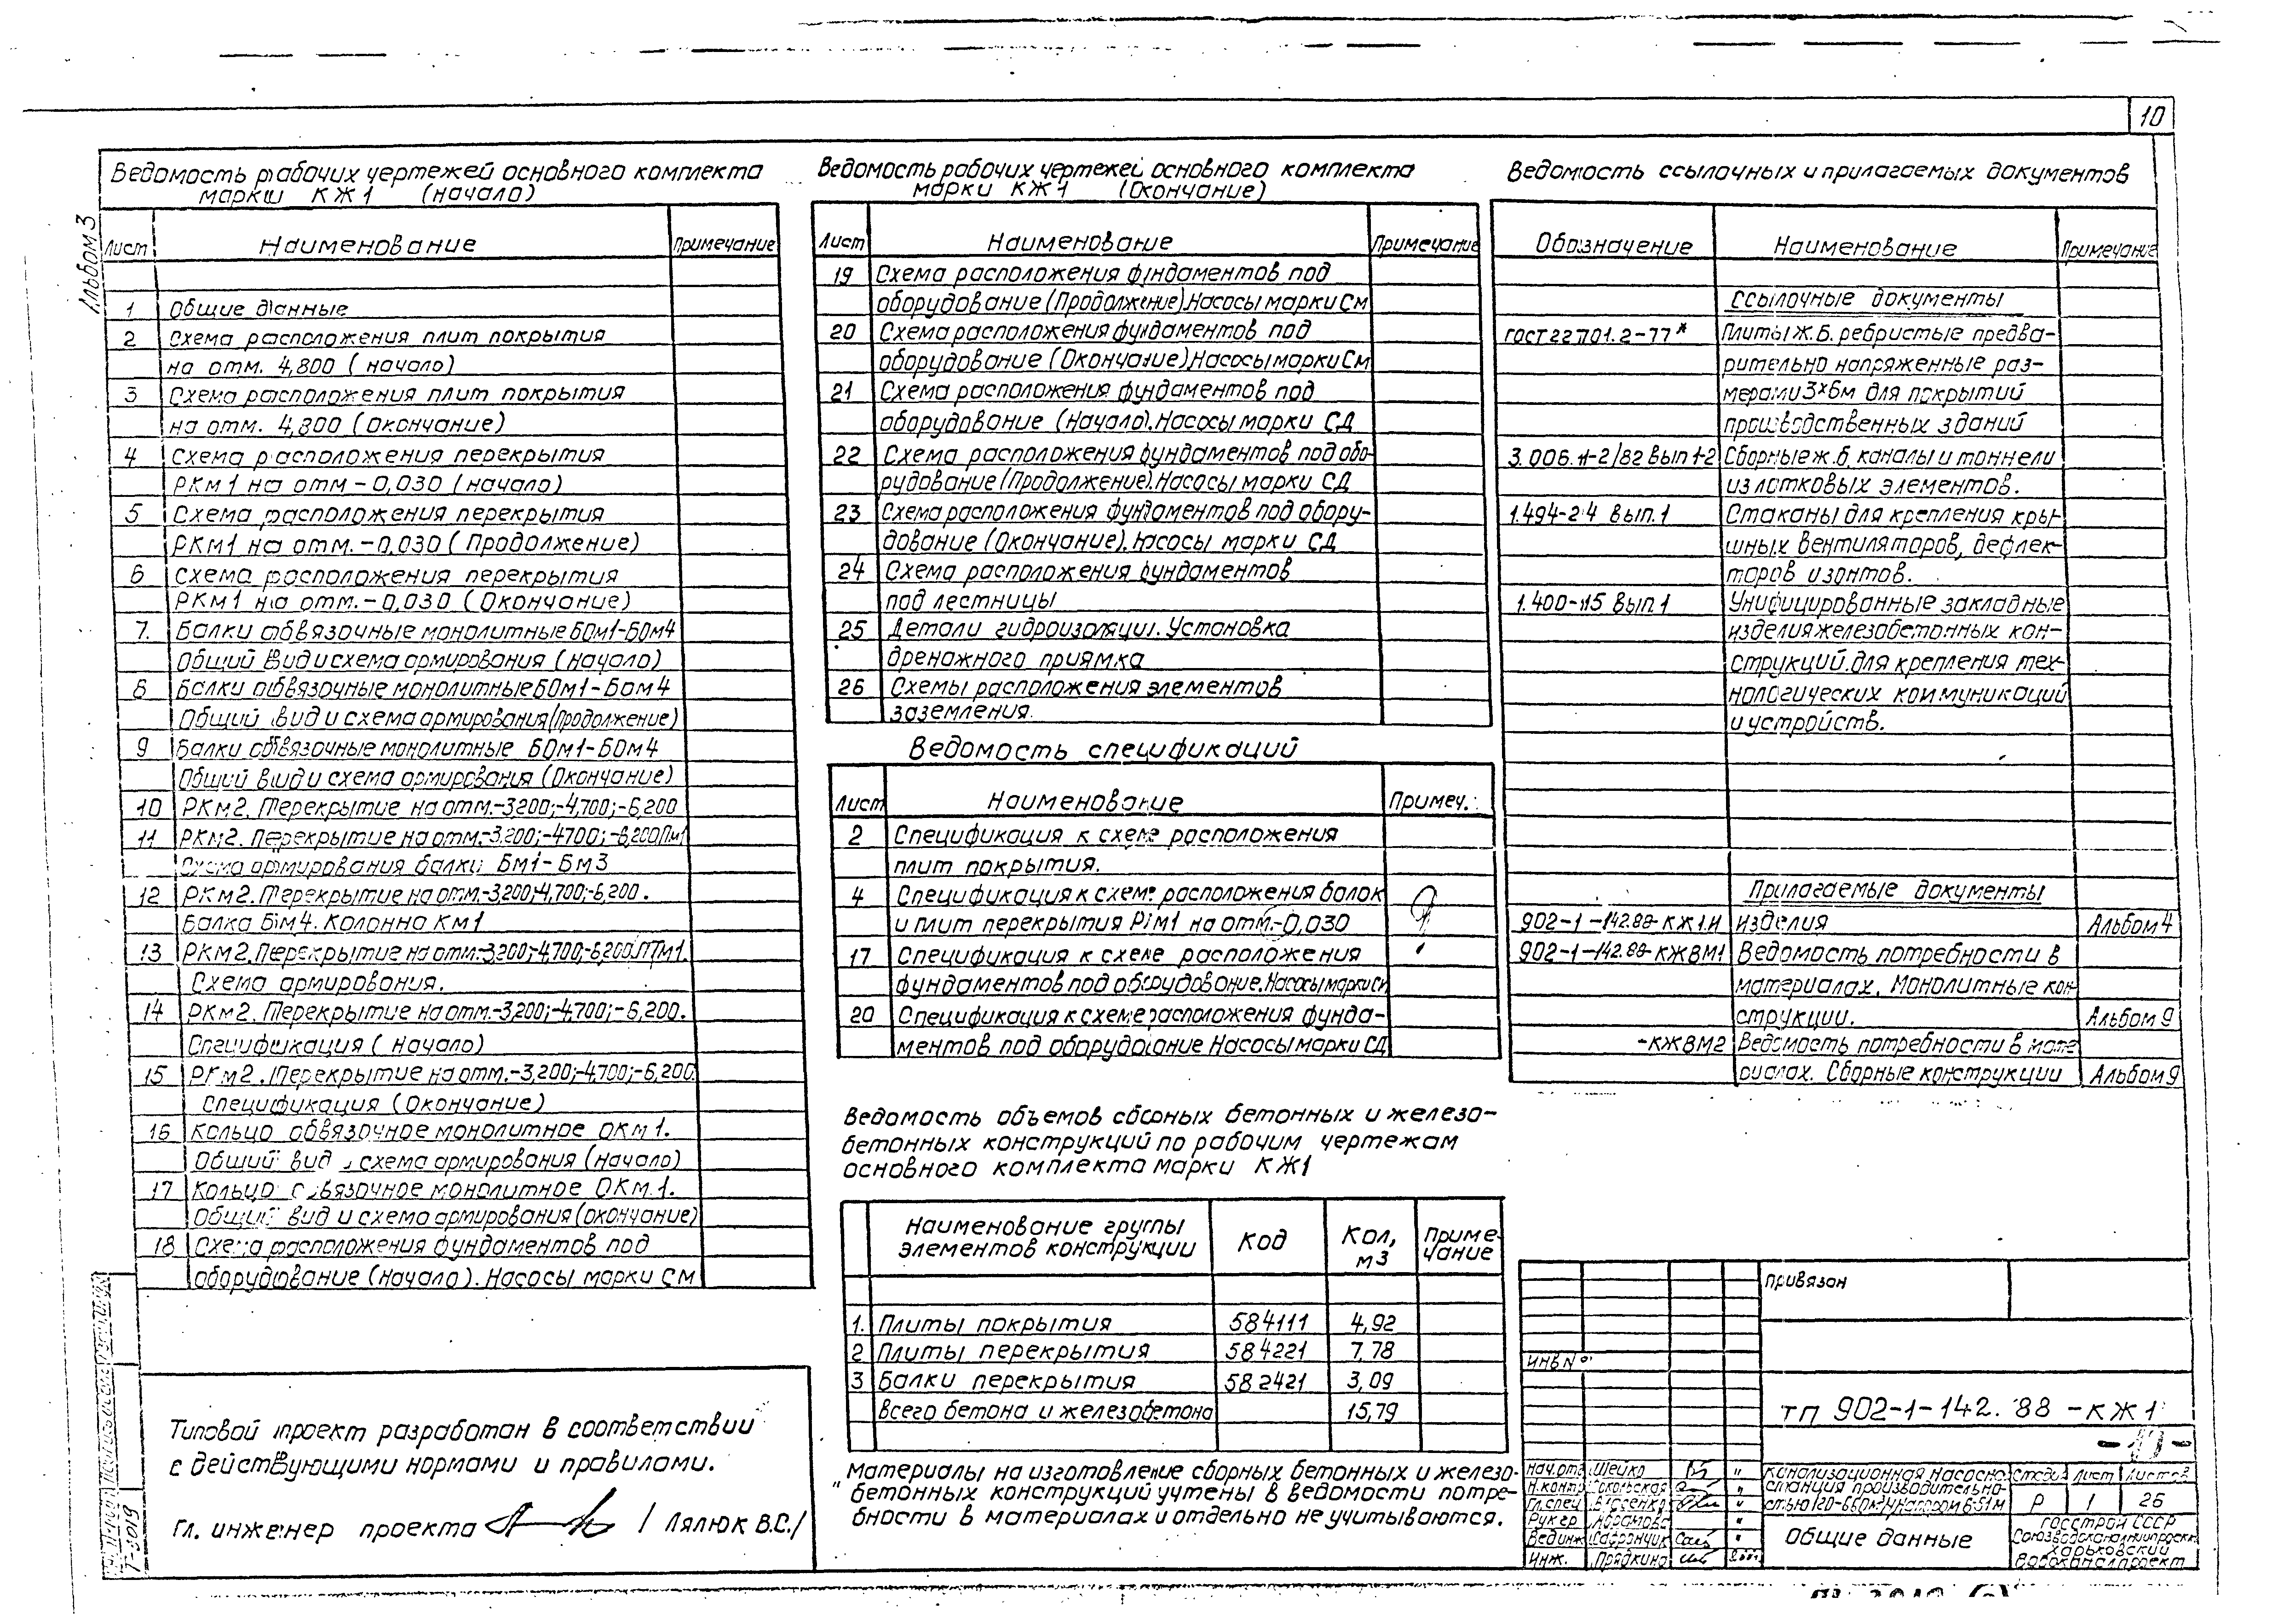 10
Альбом 3
Ведомость рабочих чертежей основного комплекта
марки КЖ1 (начало)
Лист Наименование Примечание
1 Общие данные
2 Схема расположения плит покрытия
на отм. 4,800 (начало)
3 Схема расположения плит покрытия
на отм. 4,800 (Окончание)
4 Схема расположения перекрытия
РКм1 на отм -0,030 (начало)
5 Схема расположения перекрытия
РКм1 на отм.-0,030 (Продолжение)
6 Схема расположения перекрытия
РКм1 на отм.-0,030 (Окончание)
7. Балки обвязочные монолитные БОм1-БОм4
Общий вид и схема армирования (начало)
8 Балки обвязочные монолитные БОм1-БОм4
Общий вид и схема армирования (Продолжение)
9 Балки обвязочные монолитные БОм1-БОм4
Общий вид и схема армирования (Окончание)
10 РКм2. Перекрытие на отм.-3,200;-4,700;-6,200
11 РКм2. Перекрытие на отм.-3,200;-4700;-6,200 Пм1
Схема армирования балки Бм1-Бм3
12 РКм2. Перекрытие на отм.-3,200;-4,700;-6,200.
Балка Бм4. Колонна Км1
13 РКм2. Перекрытие на отм.-3,200;-4,700;-6,200. ПТм1.
Схема армирования.
14 РКм2. Перекрытие на отм.-3,200;-4,700;-6,200.
Спецификация (начало)
15 РКм2. Перекрытие на отм.-3,200;-4,700;-6,200.
Спецификация (Окончание)
16 Кольцо обвязочное монолитное ОКм1.
Общий вид и схема армирования (начало)
17 Кольцо обвязочное монолитное ОКм1.
Общий вид и схема армирования (окончание)
18 Схема расположения фундаментов под
оборудование (начало). Насосы марки СМ
Типовой проект разработан в соответствии
с действующими нормами и правилами.
Гл. инженер проекта / Лялюк В.С./
Ведомость рабочих чертежей основного комплекта
марки КЖ1 (Окончание)
Лист Наименование Примечание
19 Схема расположения фундаментов под
оборудование (Продолжение). Насосы марки СМ
20 Схема расположения фундаментов под
оборудование (Окончание). Насосы марки СМ
21 Схема расположения фундаментов под
оборудование (Начало). Насосы марки СД
22 Схема расположения фундаментов под обо-
рудование (Продолжение). Насосы марки СД
23 Схема расположения фундаментов под обору-
дование (Окончание). Насосы марки СД
24 Схема расположения фундаментов
под лестницы
25 Детали гидроизоляции. Установка
дренажного приямка
26 Схемы расположения элементов
заземления.
Ведомость спецификаций
Лист Наименование Примеч.
2 Спецификация к схеме расположения
плит покрытия.
4 Спецификация к схеме расположения балок
и плит перекрытия РКм1 на отм.-0,030
17 Спецификация к схеме расположения
фундаментов под оборудование. Насосы марки СМ
20 Спецификация к схеме расположения фунда-
ментов под оборудование Насосы марки СД
Ведомость объемов сборных бетонных и железо-
бетонных конструкций по рабочим чертежам
основного комплекта марки КЖ1
Наименование группы элементов конструкции Код Кол, м3 Приме-чание
1. Плиты покрытия 584111 4,92
2 Плиты перекрытия 584221 7,78
3 Балки перекрытия 582421 3,09
всего бетона и железобетона 15,79
Материалы на изготовление сборных бетонных и железо-
бетонных конструкций учтены в ведомости потре-
бности в материалах и отдельно не учитываются.
Ведомость ссылочных и прилагаемых документов
Обозначение Наименование Примечание
Ссылочные документы
ГОСТ 22701.2-77* Плиты ж.б. ребристые предва-
рительно напряженные раз-
мерами 3×6м для покрытий
производственных зданий
3.006.1-2/82 вып 1-2 Сборные ж.б. каналы и тоннели
из лотковых элементов.
1.494-24 вып.1 Стаканы для крепления кры-
шных вентиляторов, дефлек-
торов и зонтов.
1.400-15 вып 1 Унифицированные закладные
изделия железобетонных кон-
струкций для крепления тех-
нологических коммуникаций
и устройств.
Прилагаемые документы
902-1-142.88-КЖ1.И изделия Альбом 4
902-1-142.88-КЖВМ1 Ведомость потребности в
материалах. Монолитные кон-
струкции. Альбом 9
-КЖВМ2 Ведомость потребности в мате
риалах. Сборные конструкции Альбом 9
Привязан
ИНВ №
ТП 902-1-142.88 -КЖ1
-10-
Нач.отд Шейко
Н.контр Сокольская
Гл.спец
Рук.гр Абрамова
Вед.инж Сафрончик
Инж. Прядкина
Канализационная насосная
станция производительно-
стью 120-660м3/ч напором 6-51м
Стадия Лист Листов
Р 1 26
Общие данные
ГОССТРОЙ СССР
Союзводоканалниипроект
Харьковский
Водоканалпроект
Т-3019